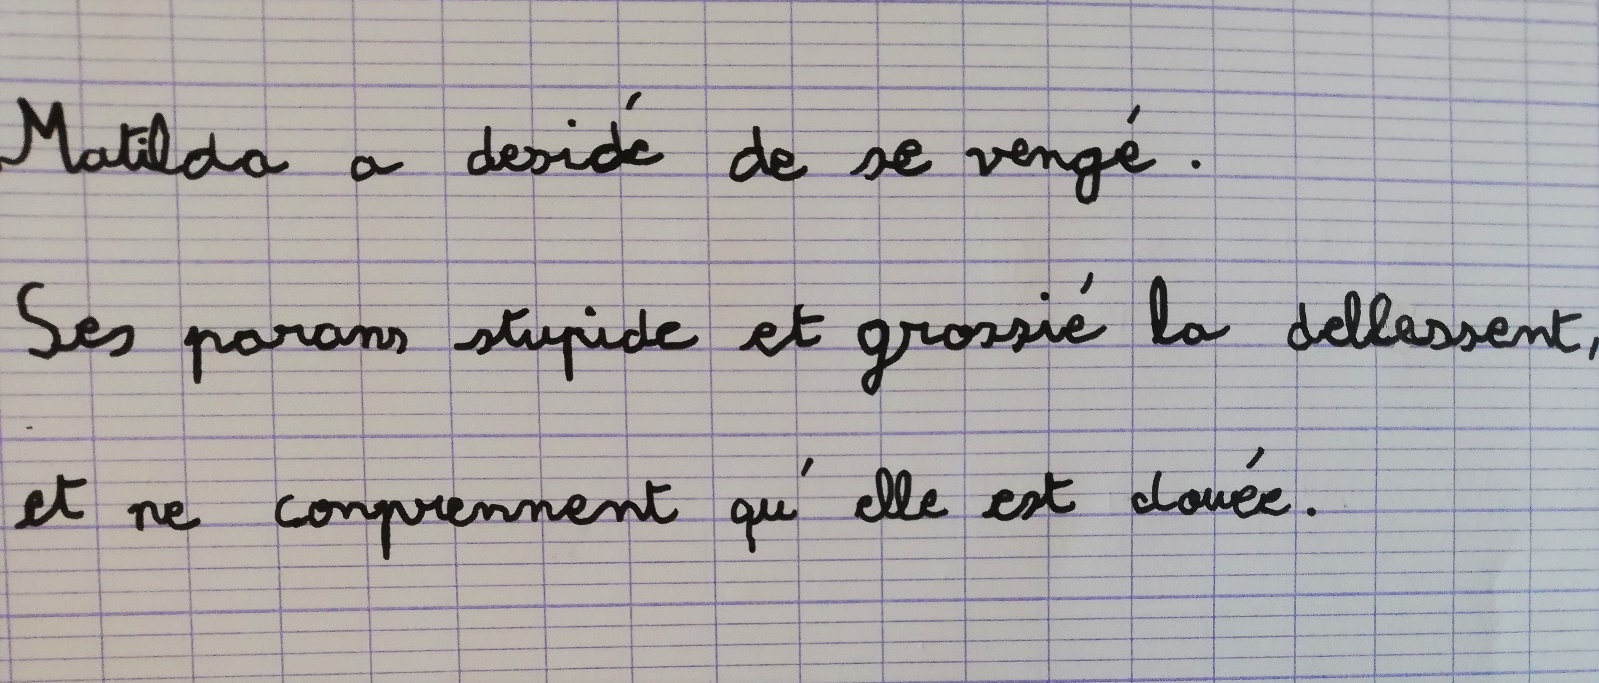 Matilda a desidé de se vengé.
Ses parans stupide et grossié la dellessent,
et ne conprennent qu'elle est douée.